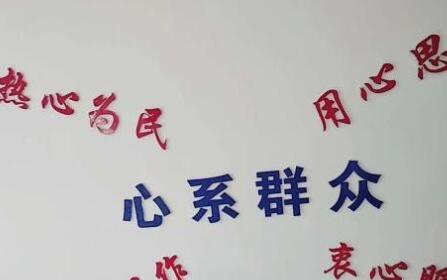 热心为民
用心思
心系群众
作
衷心